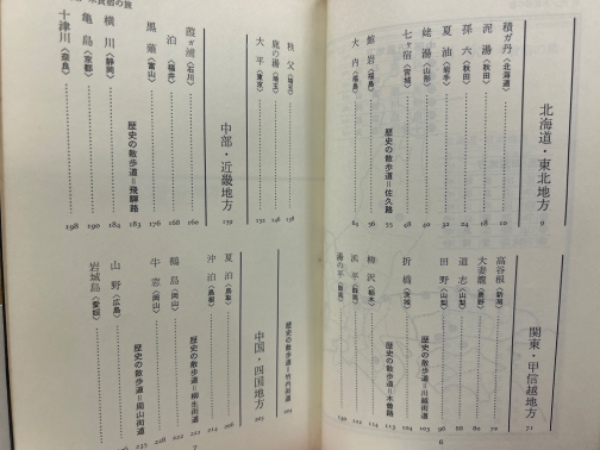 北海道・東北地方 9
積ガ丹〈北海道〉 10
泥湯〈秋田〉 18
孫六〈秋田〉
夏油〈岩手〉 32
姥湯〈山形〉 40
七ヶ宿〈宮城〉 48
歴史の散歩道=佐久路 55
館岩〈福島〉 56
大内〈福島〉 64
関東・甲信越地方 71
高谷根〈新潟〉
大妻籠〈長野〉
道志〈山梨〉 88
田野〈山梨〉 96
歴史の散歩道=川越街道 103
折橋〈茨城〉 104
歴史の散歩道=木曽路 113
梅沢〈栃木〉 114
浜平〈群馬〉
湯の平〈群馬〉 130
6
秩父〈埼玉〉 138
鹿の湯〈埼玉〉 146
大平〈東京〉 152
中部・近畿地方 159
葭ガ浦〈石川〉 160
泊〈福井〉 168
黒薙〈富山〉 176
歴史の散歩道=飛騨路 183
横川〈静岡〉 184
亀島〈京都〉 190
十津川〈奈良〉 198
歴史の散歩道=竹内街道
中国・四国地方 205
夏泊〈鳥取〉 206
沖泊〈島根〉 214
歴史の散歩道=柳生街道
鶴島〈岡山〉 222
牛窓〈岡山〉 228
歴史の散歩道=周山街道 235
山野〈広島〉
岩城島〈愛媛〉
7